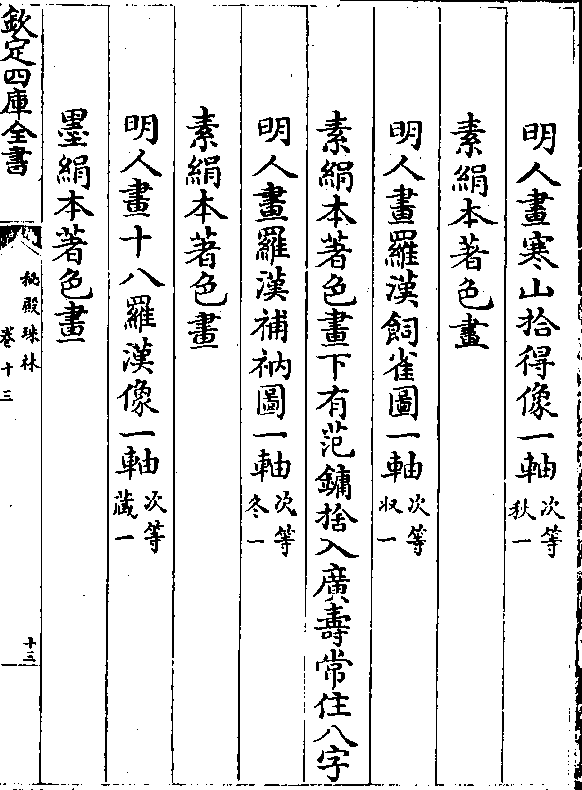 明人畫寒山拾得像一軸次等秋一
素絹本著色畫
明人畫羅漢飼雀圖一軸次等收一
素絹本著色畫下有范鏞捨入廣壽常住八字
明人畫羅漢補衲圖一軸次等冬一
素絹本著色畫
明人畫十八羅漢像一軸次等藏一
墨絹本著色畫
欽定四庫全書
秘殿珠林
卷十三
十三